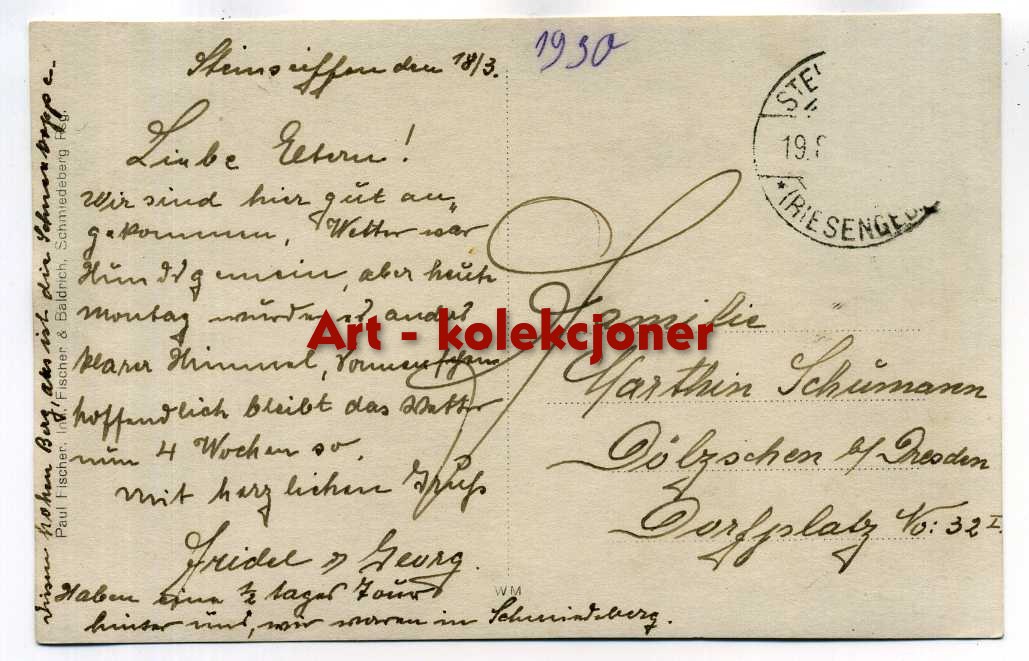 Steinseiffen den 18/3.
1930
Liebe Eltern!
Wir sind hier gut an„
gekommen, Wetter war
Hundsgemein, aber heute
Montag wurde es anders
klarer Himmel,
hoffendlich bleibt das Wetter
nun 4 Wochen so.
Mit herzlichen Gruß
Fridel u Georg.
Haben eine ½ tages Tour
hinter uns, wir waren in Schmiedeberg.
diesen hohen Berg, das ist die Schneekoppe
Paul Fischer, Inh. Fischer & Baldrich, Schmiedeberg Rsg.
WM
STEI
19.
* (RIESENGEB.
Art - kolekcjoner
Familie
Marthin Schumann
Dölzschen b/ Dresden
Dorfplatz No: 32 I.